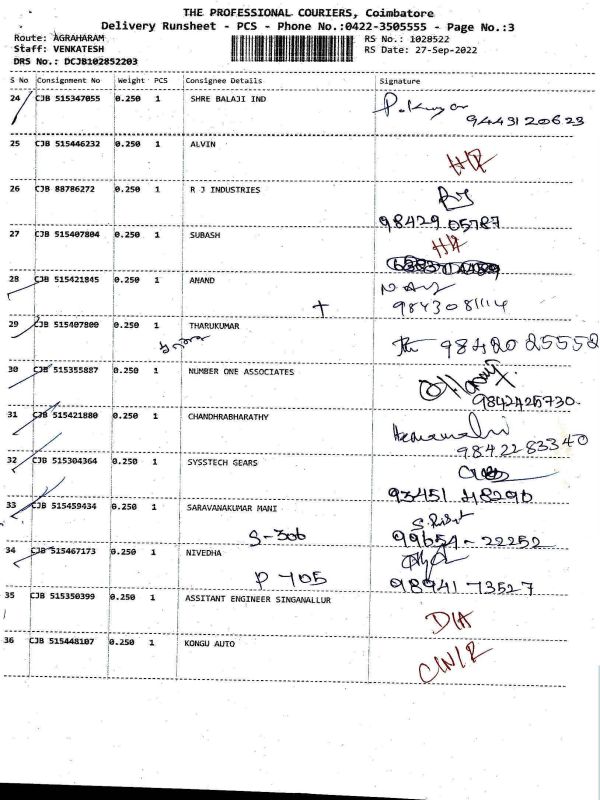 THE PROFESSIONAL COURIERS, Coimbatore
Delivery Runsheet - PCS - Phone No.:0422-3505555 - Page No.:3
Route: AGRAHARAM RS No.: 1028522
Staff: VENKATESH RS Date: 27-Sep-2022
DRS No.: DCJB102852203
S No Consignment No Weight PCS Consignee Details Signature
24 CJB 515347055 0.250 1 SHRE BALAJI IND P.Kumar
9443120623
25 CJB 515446232 0.250 1 ALVIN
26 CJB 88786272 0.250 1 R J INDUSTRIES
98429 05787
27 CJB 515407804 0.250 1 SUBASH
28 CJB 515421845 0.250 1 ANAND
9843081114
29 CJB 515407800 0.250 1 THARUKUMAR
98420 25552
30 CJB 515355887 0.250 1 NUMBER ONE ASSOCIATES
9842425730.
31 CJB 515421880 0.250 1 CHANDHRABHARATHY
9842283340
32 CJB 515304364 0.250 1 SYSSTECH GEARS
93451 48296
33 CJB 515459434 0.250 1 SARAVANAKUMAR MANI
S-306 99654-22252
34 CJB 515467173 0.250 1 NIVEDHA
P-105 98941-73527
35 CJB 515350399 0.250 1 ASSITANT ENGINEER SINGANALLUR
D/A
36 CJB 515448107 0.250 1 KONGU AUTO